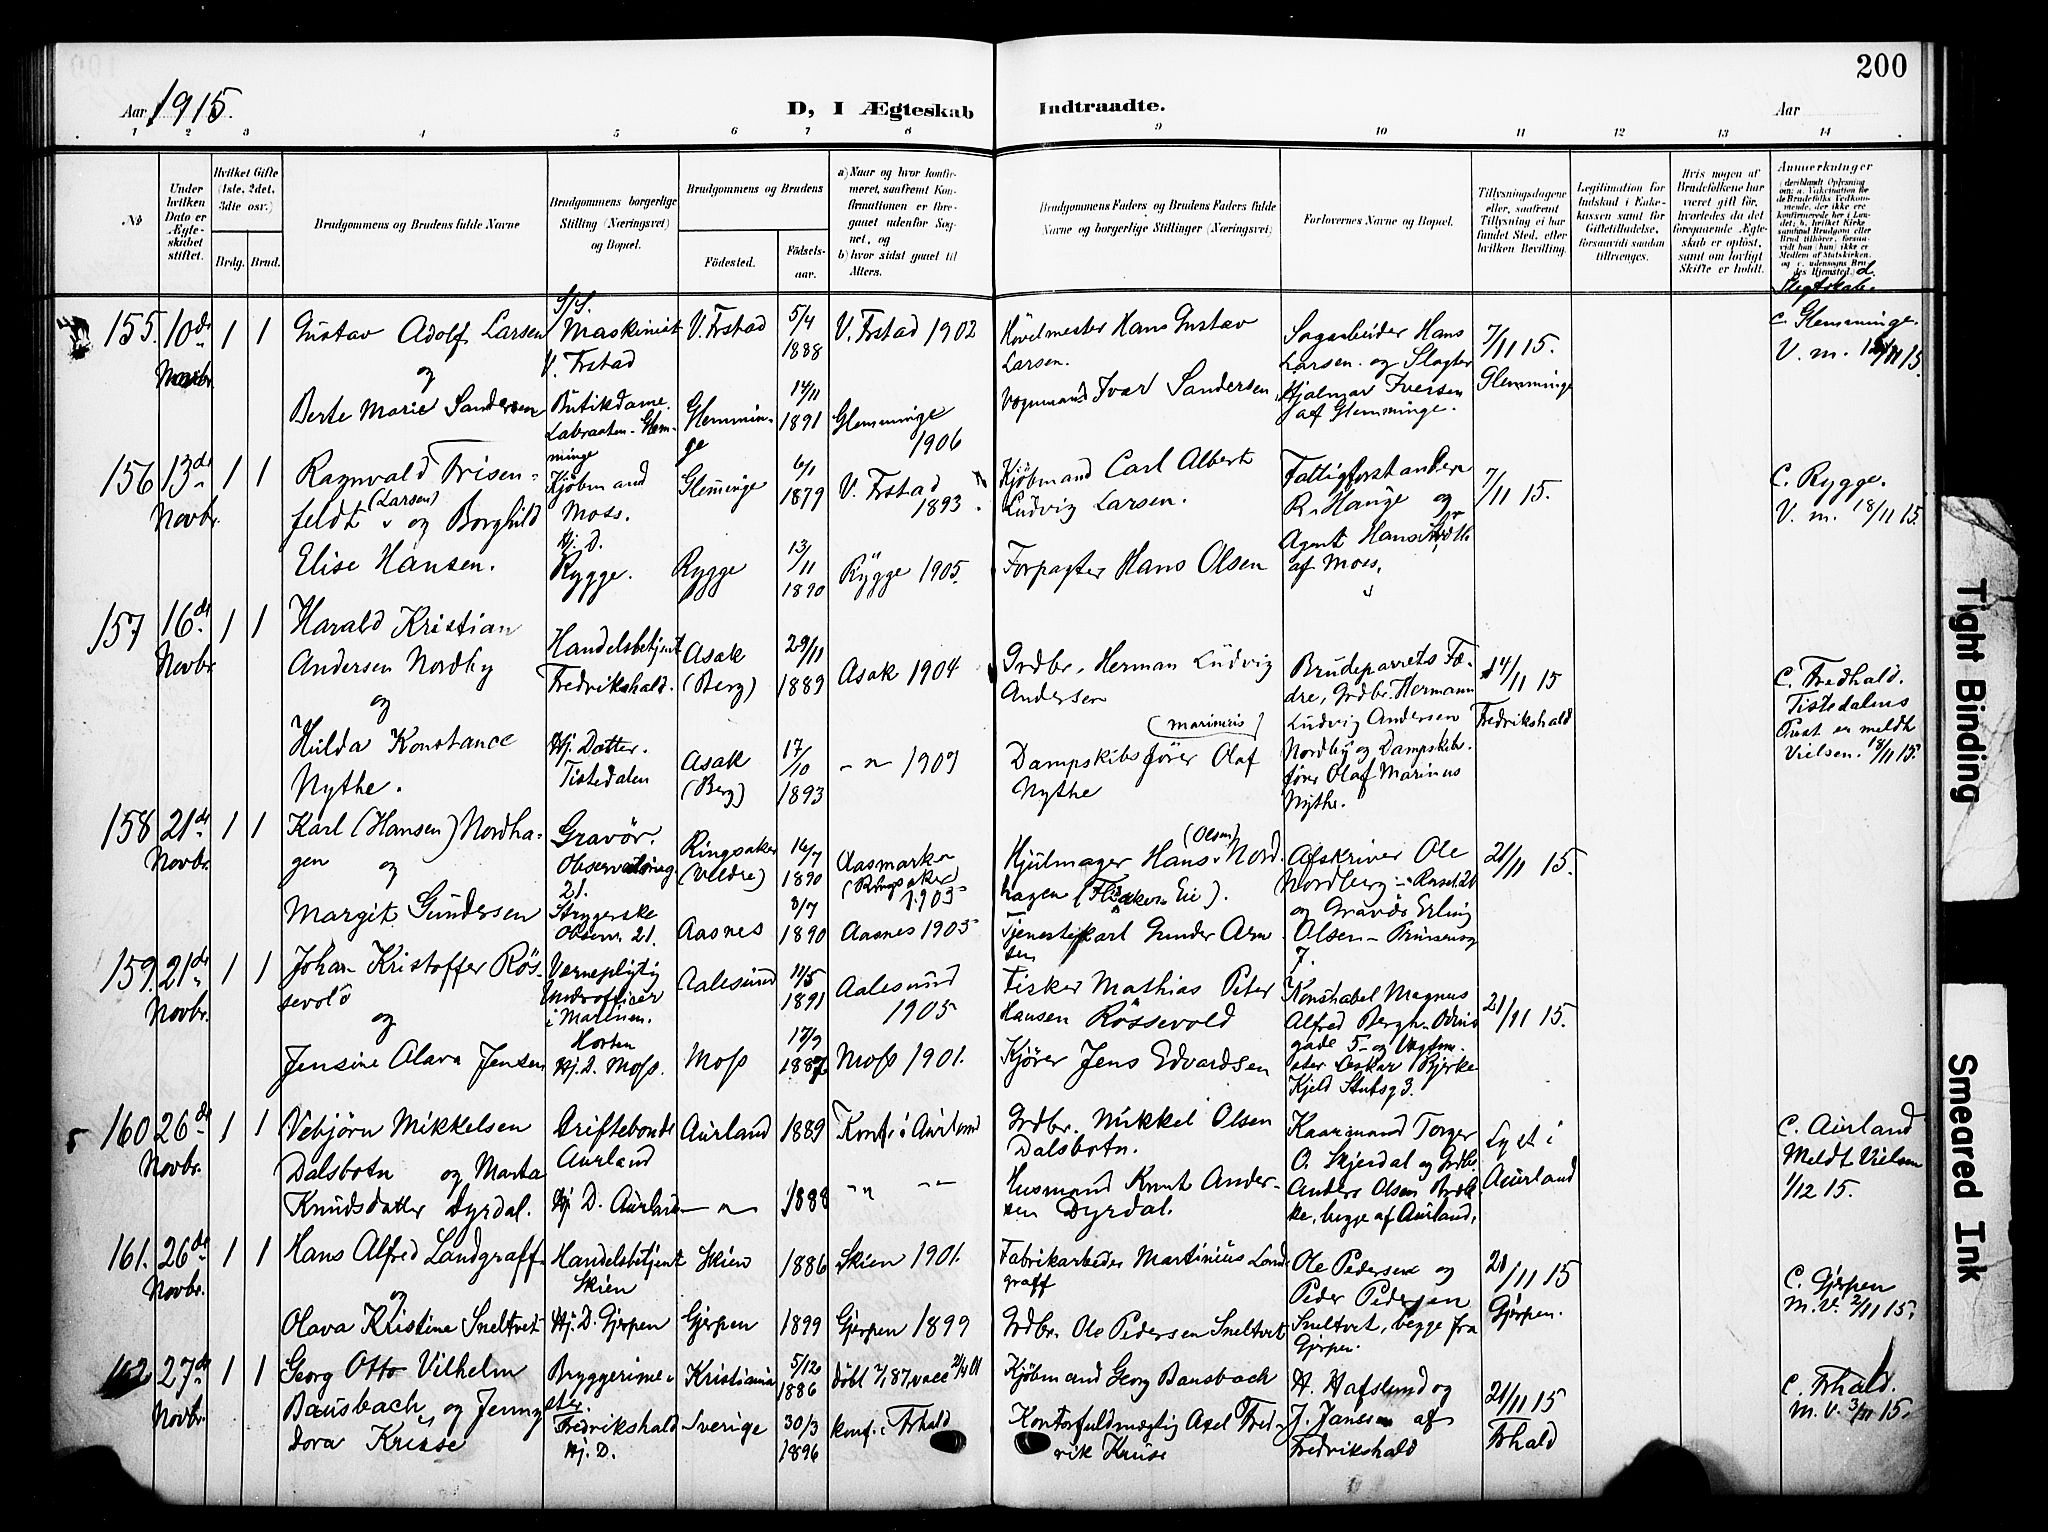 200
Aar 1915.
D, I Ægteskab Indtraadte.
Aar
1 2 3 4 5 6 7 8 9 10 11 12 13 14
No
Under hvilken Dato er Ægteskabet stiftet.
Hvilket Gifte (1ste, 2det, 3die osv.)
Brdg. Brud.
Brudgommens og Brudens fulde Navne
Brudgommens borgerlige Stilling (Næringsvei) og Bopæl.
Brudgommens og Brudens
Fødested. Fødselsaar.
a) Naar og hvor konfirmeret, saafremt Konfirmationen er foregaaet udenfor Sognet, og
b) hvor sidst gaaet til Alters.
Brudgommens Faders og Brudens Faders fulde Navne og borgerlige Stillinger (Næringsvei)
Forlovernes Navne og Bopæl.
Tillysningsdagene eller, saafremt Tillysning ei har fundet Sted, efter hvilken Bevilling.
Legitimation for Indskud i Enkekassen samt for Giftetilladelse, forsaavidt saadan tiltrænges.
Hvis nogen af Brudefolkene har været gift før, hvorledes da det foregaaende Ægteskab er opløst, samt om lovligt Skifte er holdt.
Anmerkninger
d. Slegtskab.
155. 10de Novbr. 1 1
Gustav Adolf Larsen
og
Berte Marie Sandersen
S/S. Maskinist
V. Frstad
Butikdame.
Labraaten - Glemminge
V. Frstad 5/4 1888 V. Frstad 1902
Glemminge 14/11 1891 Glemminge 1906
Høvelmester Hans Gustav Larsen.
Vognmand Ivar Sandersen
Sagarbeider Hans Larsen og Slagter Hjalmar Iversen af Glemminge.
7/11 15. Glemminge
C. Glemminge.
V. m. 15.
156 13de Novbr. 1 1
Ragnvald Frisenfeldt (Larsen) og Borghild
Elise Hansen.
Kjøbmand
Moss.
Hj. D.
Rygge.
Gleminge 6/1 1879 V. Frstad 1893.
Rygge 13/11 1890 Rygge 1905.
Kjøbmand Carl Albert Ludvig Larsen.
Forpagter Hans Olsen
Fattigforstander R. Hauge og
Agent Hans
af Moss.
7/11 15.
C. Rygge.
V. m. 18/11 15.
157 16de Novbr. 1 1
Harald Kristian
Andersen Nordby
og
Hilda Konstance
Nythe.
Handelsbetjent
Fredrikshald.
Hj. Datter.
Tistedalen
Asak (Berg) 29/11 1889 Asak 1904
Asak (Berg) 17/10 1893 - " - 1909
Grdbr. Herman Ludvig Andersen
(Marinius)
Dampskibsfører Olaf Nythe
Brudeparrets Fædre, Grdbr. Hermann Ludvig Andersen Nordby og Dampskibsfører Olaf Marinus Nythe.
14/11 15 Fredrikshald
C. Fredhald.
Tistedalens Prest er meldt
Vielsen. 18/11 15.
158 21de Novbr. 1 1
Karl (Hansen) Nordhagen
og
Margit Gundersen
Gravør.
Observatorieg. 21.
Strygerske
Observ. 21.
Ringsaker (Veldre) 16/7 1890 Aasmarka (Ringsaker) 1905
Aasnes 3/7 1890 Aasnes 1905
Hjulmager Hans (Olsen) Nordhagen
Tjenestekarl Gunder Arnesen
Afskriver Ole Nordberg
og Gravør Erling Olsen - Prinsensg 7.
21/11 15.
159. 21de Novbr. 1 1
Johan Kristoffer Røssevold
og
Jensine Olava Jensen
Vernepligtig
Underofficer
i Marinen.
Horten
Hj. D. Moss.
Aalesund 11/5 1891 Aalesund 1905
Moss 17/9 1887 Moss 1901.
Fisker Mathias Peter Hansen Røssevold
Kjører Jens Edvardsen
Konstabel Magnus Alfred Bergh - Odinsgade 5 - og Oskar Bjerke Kjeld Stubsg 3.
21/11 15.
160 26de Novbr. 1 1
Vebjørn Mikkelsen
Dalsbotn og Marta
Knudsdatter Dyrdal.
Driftebonde
Aurland
Hj D. Aurland
Aurland 1889 Konf. i Aurland
- " - 1888 - " - - " -
Grdbr. Mikkel Olsen Dalsbotn.
Husmand Knut Andersen Dyrdal.
Kaarmand Torger O. Skjerdal og Grdbr. Anders Olsen Brekke, begge af Aurland.
Lyst i Aurland
C. Aurland
Meldt Vielsen
1/12 15.
161. 26de Novbr. 1 1
Hans Alfred Landgraff
og
Olava Kristine Sneltvet
Handelsbetjent
Skien
Hj. D. Gjerpen
Skien 1886 Skien 1901.
Gjerpen 1899 Gjerpen 1899
Fabrikarbeider Martinius Landgraff
Grdbr. Ole Pedersen Sneltvet
Ole Pedersen og Peder Pedersen Sneltvet, begge fra Gjerpen.
21/11 15 Gjerpen.
C. Gjerpen
M. V. 2/11 15.
162 27de Novbr. 1 1
Georg Otto Vilhelm
Bausback, og Jenny
dora Kruse
Bryggerimester.
Fredrikshald
Hj. D.
Kristiania 5/12 1886 døbt 7/1 87, vacc 2/4 01
Sverige 30/3 1896 konf. i Frhald
Kjøbmand Georg Bausback
Kontorfuldmægtig Axel Fredrik Kruse
H. Hafslund og J. Jansen af Fredrikshald
21/11 15 Frhald
C. Frhald.
M. V. 3/11 15.
Tight Binding
Smeared Ink